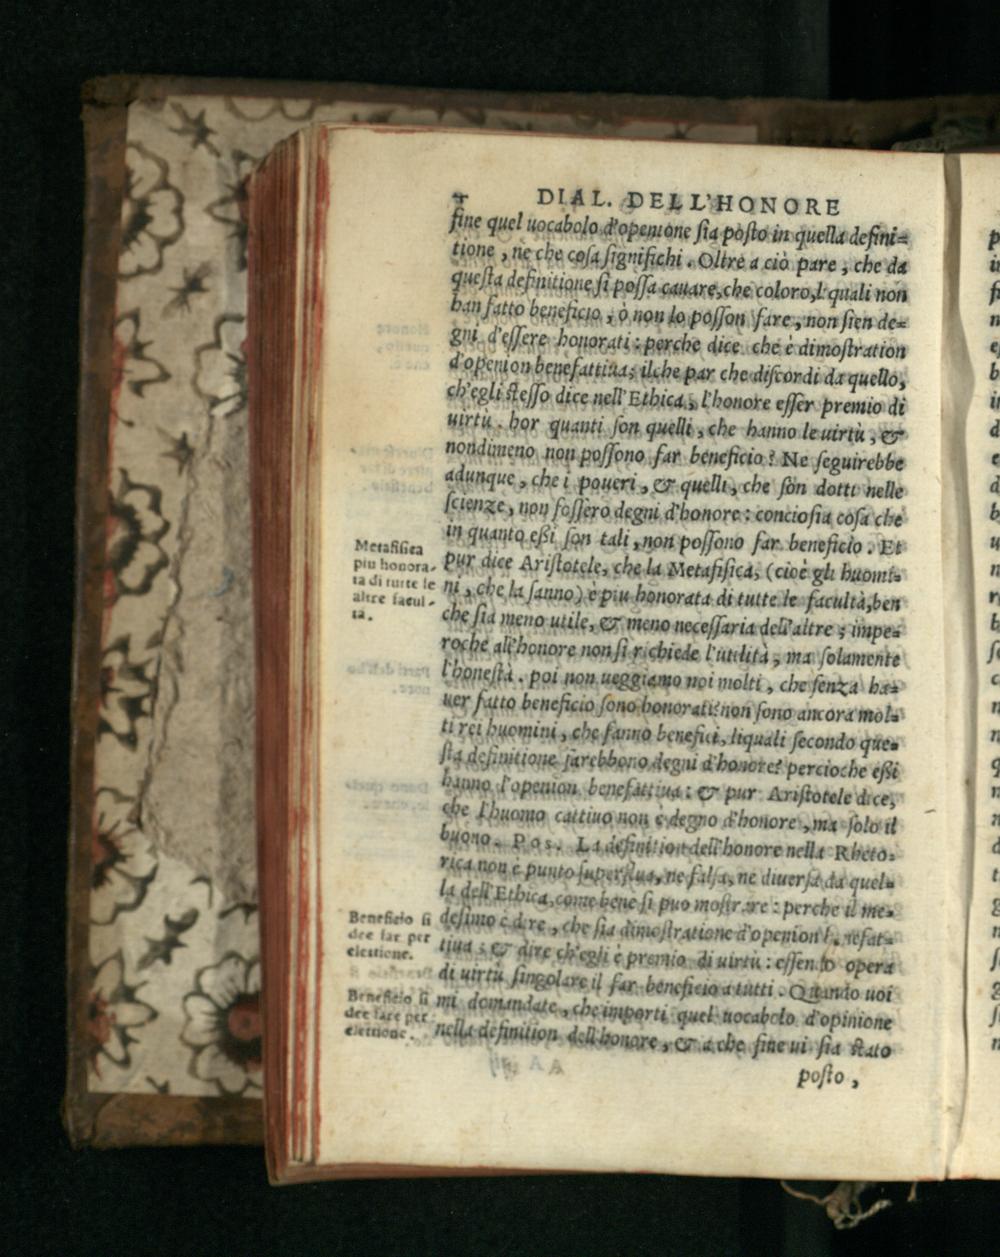 4 DIAL. DELL'HONORE
fine quel uocabolo d'openione ſia poſto in quella defini=
tione, ne che coſa ſignifichi. Oltre a ciò pare, che da
queſta definitione ſi poſſa cauare, che coloro, i quali non
han fatto beneficio, ò non lo poſſon fare, non ſien de=
gni d'eſſere honorati: perche dice che è dimoſtration
d'openion benefattiua; ilche par che diſcordi da quello,
ch'egli ſteſſo dice nell'Ethica, l'honore eſſer premio di
uirtù. hor quanti ſon quelli, che hanno le uirtù, &
nondimeno non poſſono far beneficio? Ne ſeguirebbe
adunque, che i poueri, & quelli, che ſon dotti nelle
ſcienze, non foſſero degni d'honore: concioſia coſa che
in quanto eßi ſon tali, non poſſono far beneficio. Et
pur dice Ariſtotele, che la Metafiſica, (cioè gli huomi=
ni, che la ſanno) è piu honorata di tutte le facultà, ben
che ſia meno utile, & meno neceſſaria dell'altre; impe=
roche all'honore non ſi richiede l'utilità, ma ſolamente
l'honeſtà. poi non ueggiamo noi molti, che ſenza ha=
uer fatto beneficio ſono honorati? non ſono ancora mol=
ti rei huomini, che fanno benefici, liquali ſecondo que=
ſta definitione ſarebbono degni d'honore? percioche eßi
hanno l'openion benefattiua: & pur Ariſtotele dice,
che l'huomo cattiuo non è degno d'honore, ma ſolo il
buono. Pos. La definition dell'honore nella Rheto=
rica non è punto ſuperflua, ne falſa, ne diuerſa da quel=
la dell'Ethica, come bene ſi puo moſtrare: perche il me=
deſimo è dire, che ſia dimoſtratione d'openion benefat=
tiua: & dire ch'egli è premio di uirtù: eſſendo opera
di uirtù ſingolare il far beneficio a tutti. Quando uoi
mi domandate, che importi quel uocabolo d'opinione
nella definition dell'honore, & a che fine ui ſia ſtato
poſto,
Metafiſica
piu honora-
ta di tutte le
altre facul-
ta.
Beneficio ſi
dee far per
elettione.
Beneficio ſi
dee fare per
elettione.